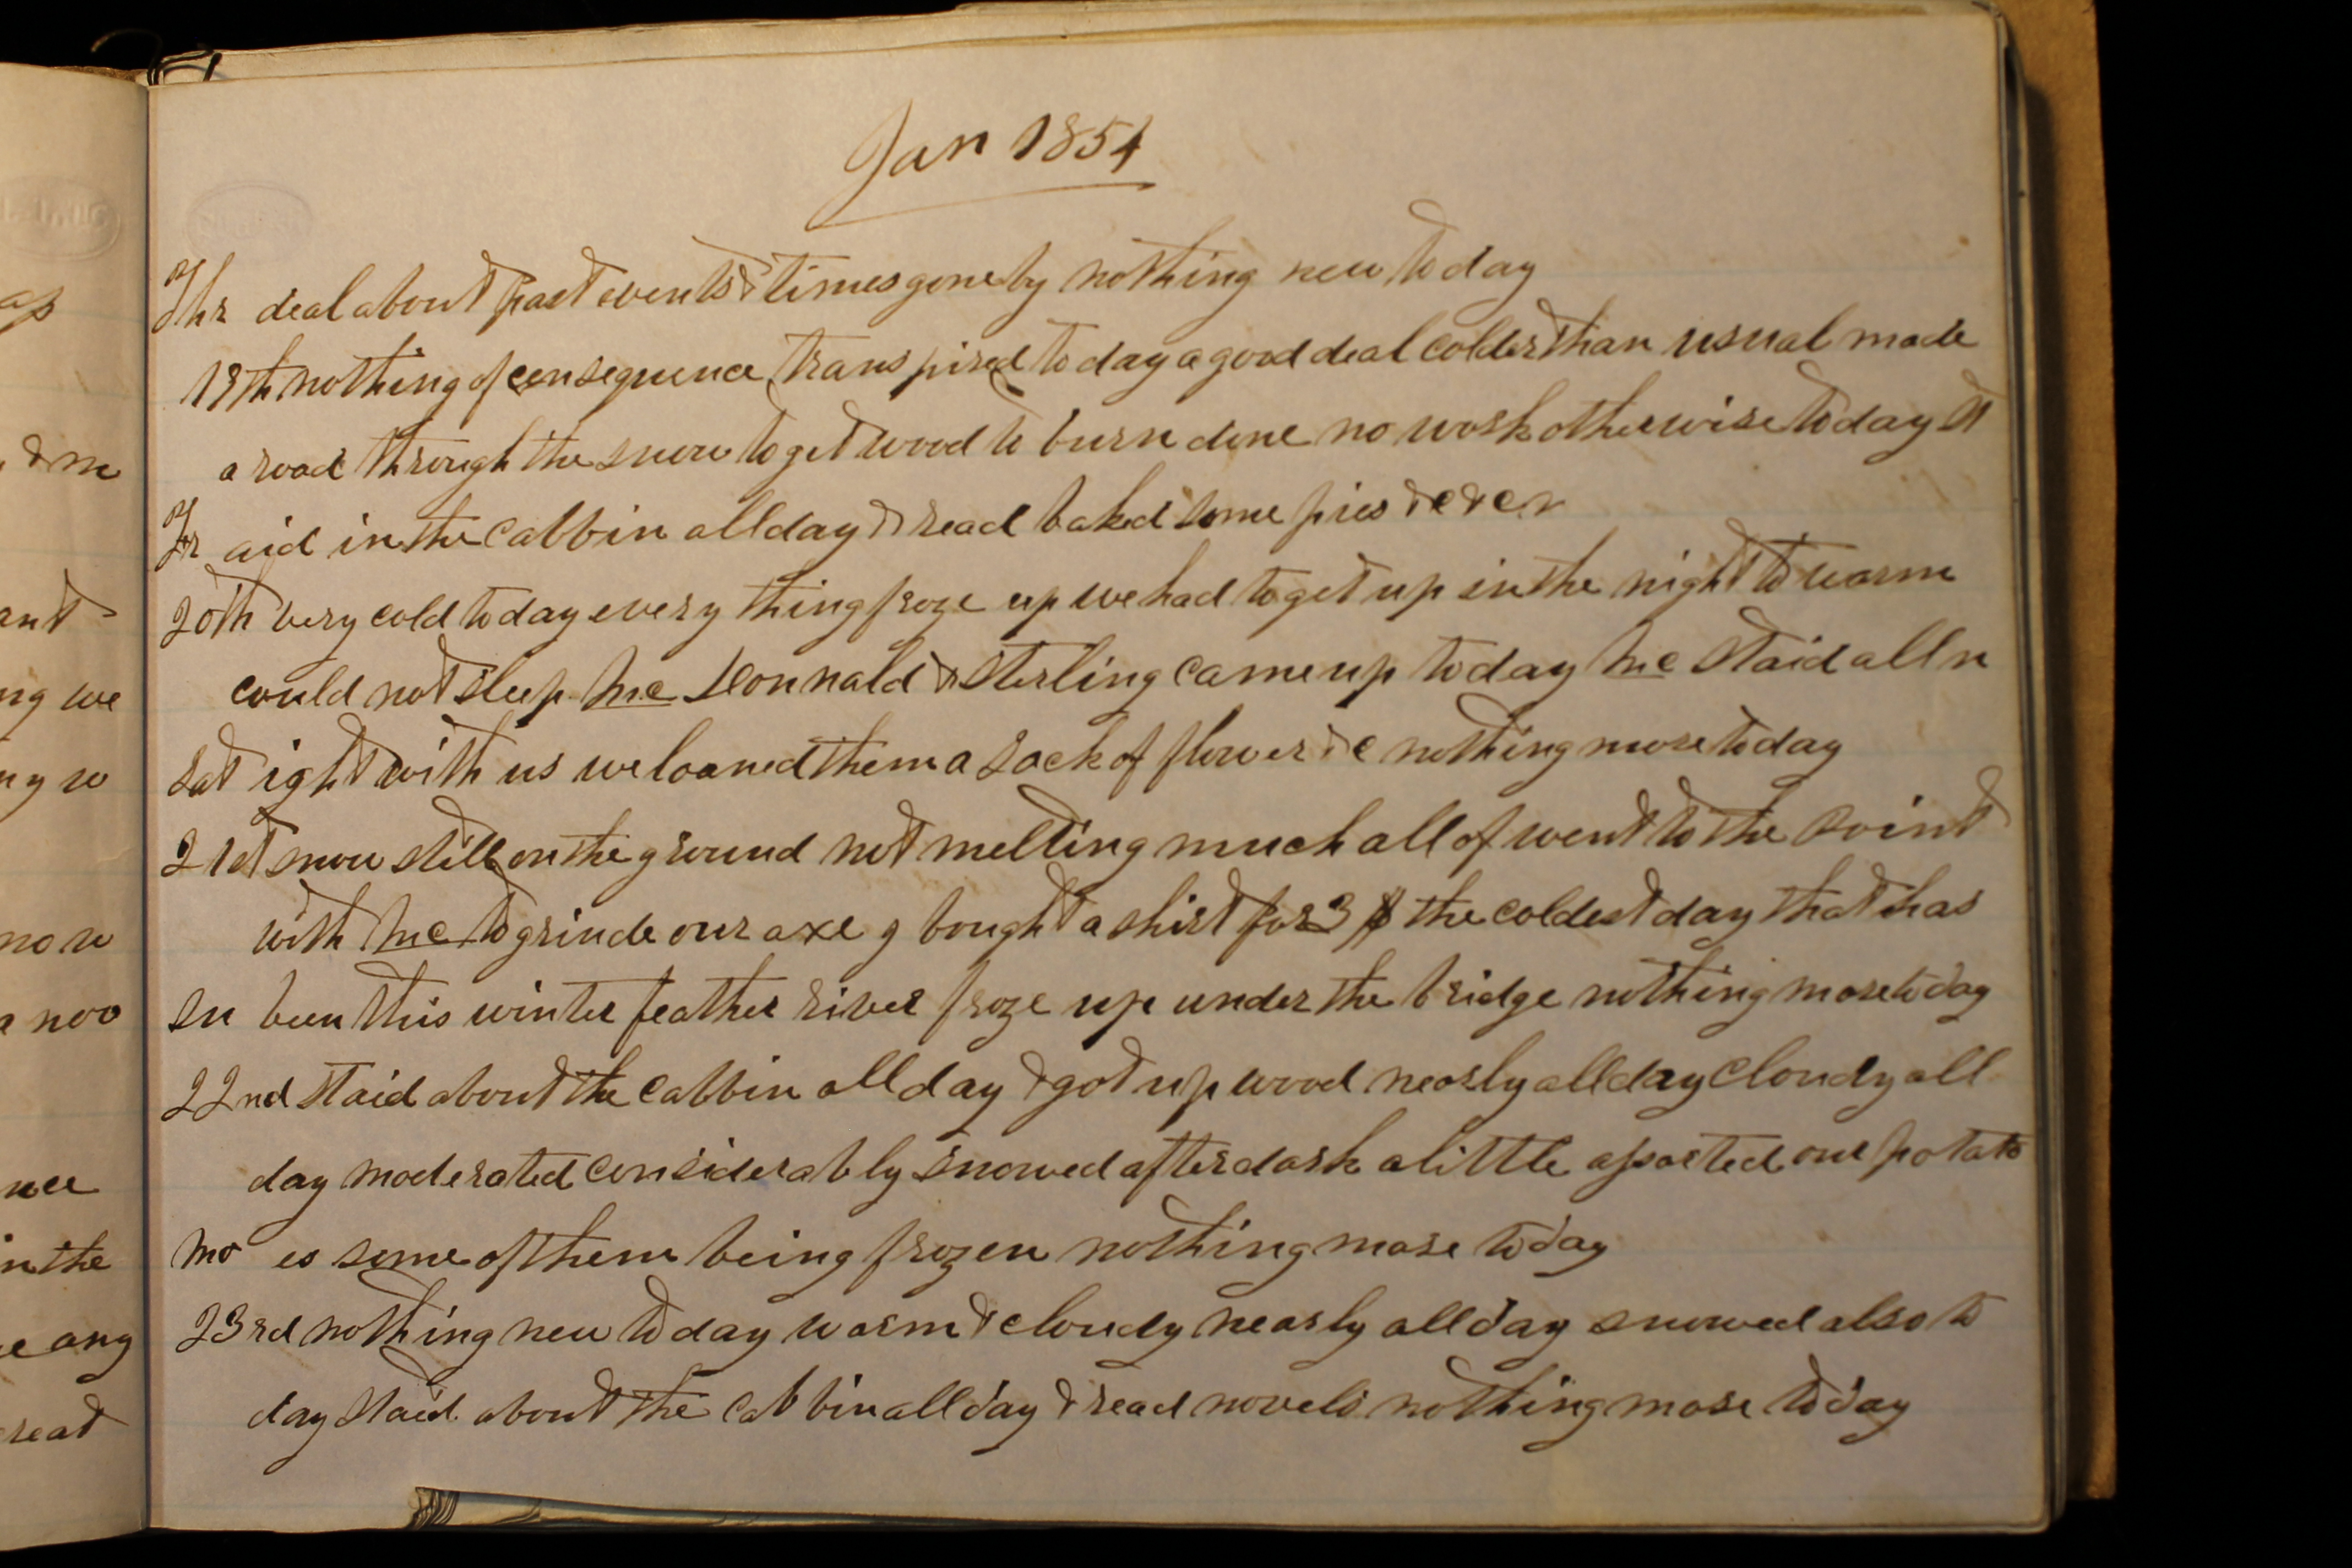 ap
& m
ant
ng we
ny w
now
a noo
nee
in the
e any
reat
Jan 1854
Thr deal about past events & times gone by nothing new to day
19th nothing of consequence transpired to day a good deal colder than usual made
a road through the snow to get wood to burn done no work otherwise to day st
Fr aid in the cabbin all day & read baked some pies &c &c
20th very cold to day every thing froze up we had to get up in the night to warm
could not sleep Mc Donnald & Sterling came up to day Mc Staid all n
Sat ight with us we loaned them a sack of flower &c nothing more to day
21st snow still on the ground not melting much all of went to the point
with Mc to grinde our axe g bought a shirt for 3 $ the coldest day that has
Su been this winter feather river froze up under the bridge nothing more to day
22nd Staid about the cabbin all day & got up wood nearly all day cloudy all
day moderated considerably snowed after dark a little asorted our potato
Mo es some of them being frozen nothing more to day
23rd nothing new to day warm & cloudy nearly all day snowed also to
day Staid about the cabbin all day & read novels nothing more to day